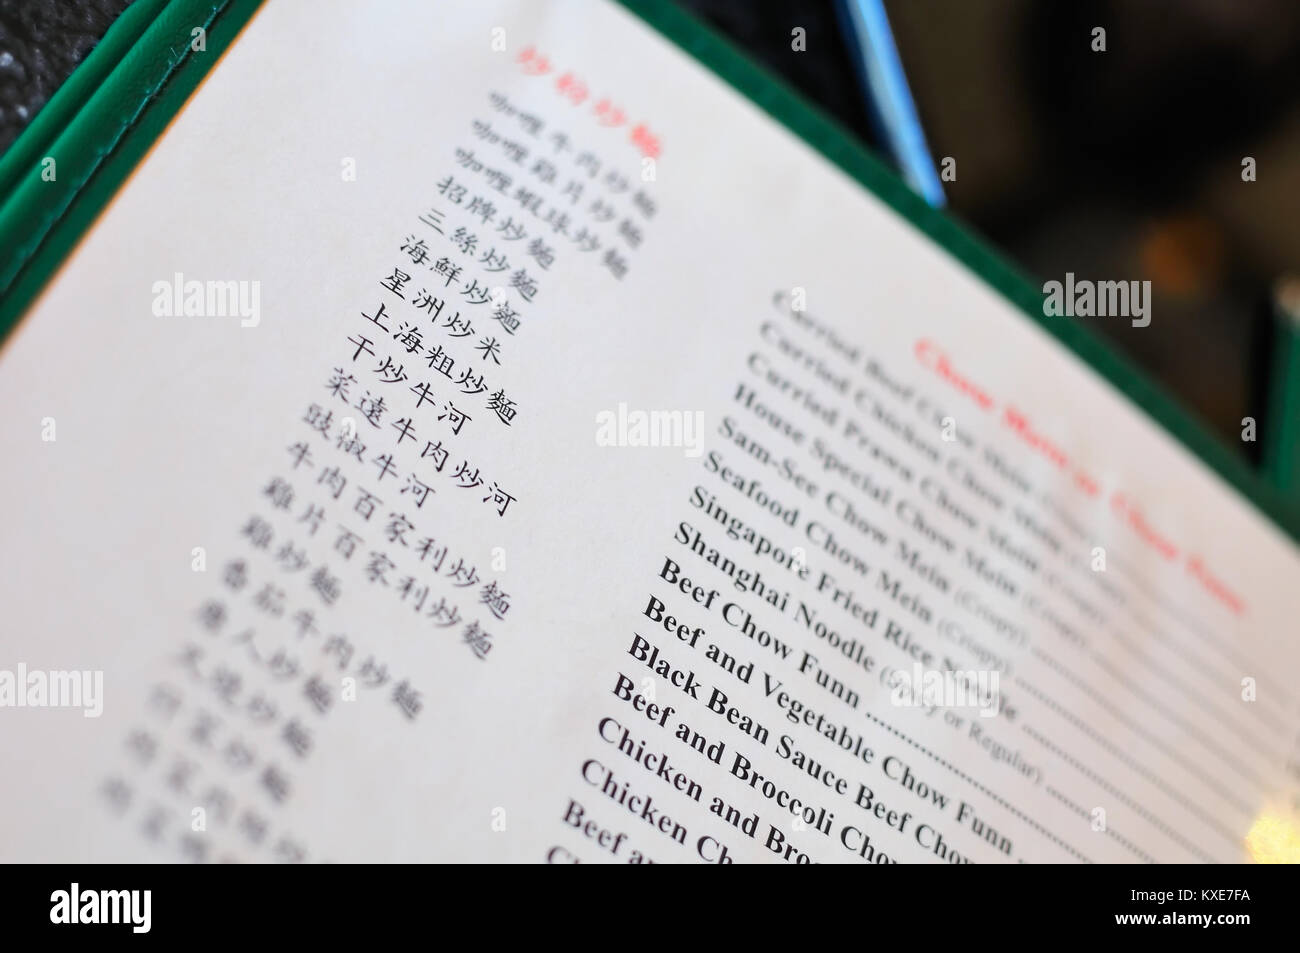 炒粉炒麵
咖喱牛肉炒麵
咖喱雞片炒麵
咖喱蝦球炒麵
招牌炒麵
三絲炒麵
海鮮炒麵
星洲炒米
上海粗炒麵
干炒牛河
菜遠牛肉炒河
豉椒牛河
牛肉百家利炒麵
雞片百家利炒麵
雞炒麵
番茄牛肉炒麵
唐人炒麵
叉燒炒麵
Chow Mein or Chow Funn
Curried Beef Chow Mein
Curried Chicken Chow Mein
Curried Prawn Chow Mein
House Special Chow Mein (Crispy)
Sam-See Chow Mein (Crispy)
Seafood Chow Mein (Crispy)
Singapore Fried Rice Noodle
Shanghai Noodle (Spicy or Regular)
Beef Chow Funn
Beef and Vegetable Chow Funn
Black Bean Sauce Beef Chow
Beef and Broccoli Chow
Chicken and
Chicken
Beef
alamy
Image ID: KXE7FA
www.alamy.com